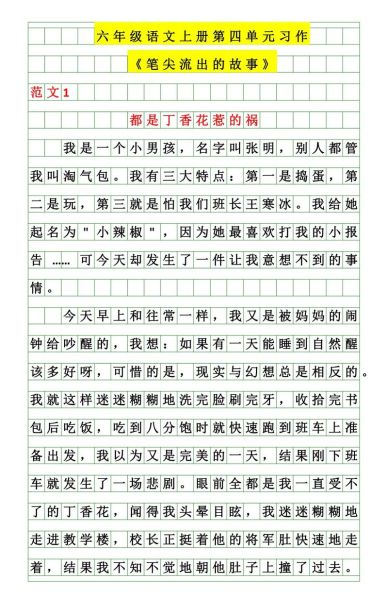 六年级语文上册第四单元习作
《笔尖流出的故事》
范文1
都是丁香花惹的祸
我是一个小男孩，名字叫张明，别人都管
我叫淘气包。我有三大特点：第一是捣蛋，第
二是玩，第三就是怕我们班长王寒冰。我给她
起名为"小辣椒"，因为她最喜欢打我的小报
告……可今天却发生了一件让我意想不到的事
情。
今天早上和往常一样，我又是被妈妈的闹
钟给吵醒的，我想：如果有一天能睡到自然醒
该多好呀，可惜的是，现实与幻想总是相反的。
我就这样迷迷糊糊地洗完脸刷完牙，收拾完书
包后吃饭，吃到八分饱时就快速跑到班车上准
备出发，我以为又是完美的一天，结果刚下班
车就发生了一场悲剧。眼前全都是我一直受不
了的丁香花，闻得我头晕目眩，我迷迷糊糊地
走进教学楼，校长正挺着他的将军肚快速地走
着，结果我不知不觉地朝他肚子上撞了过去。